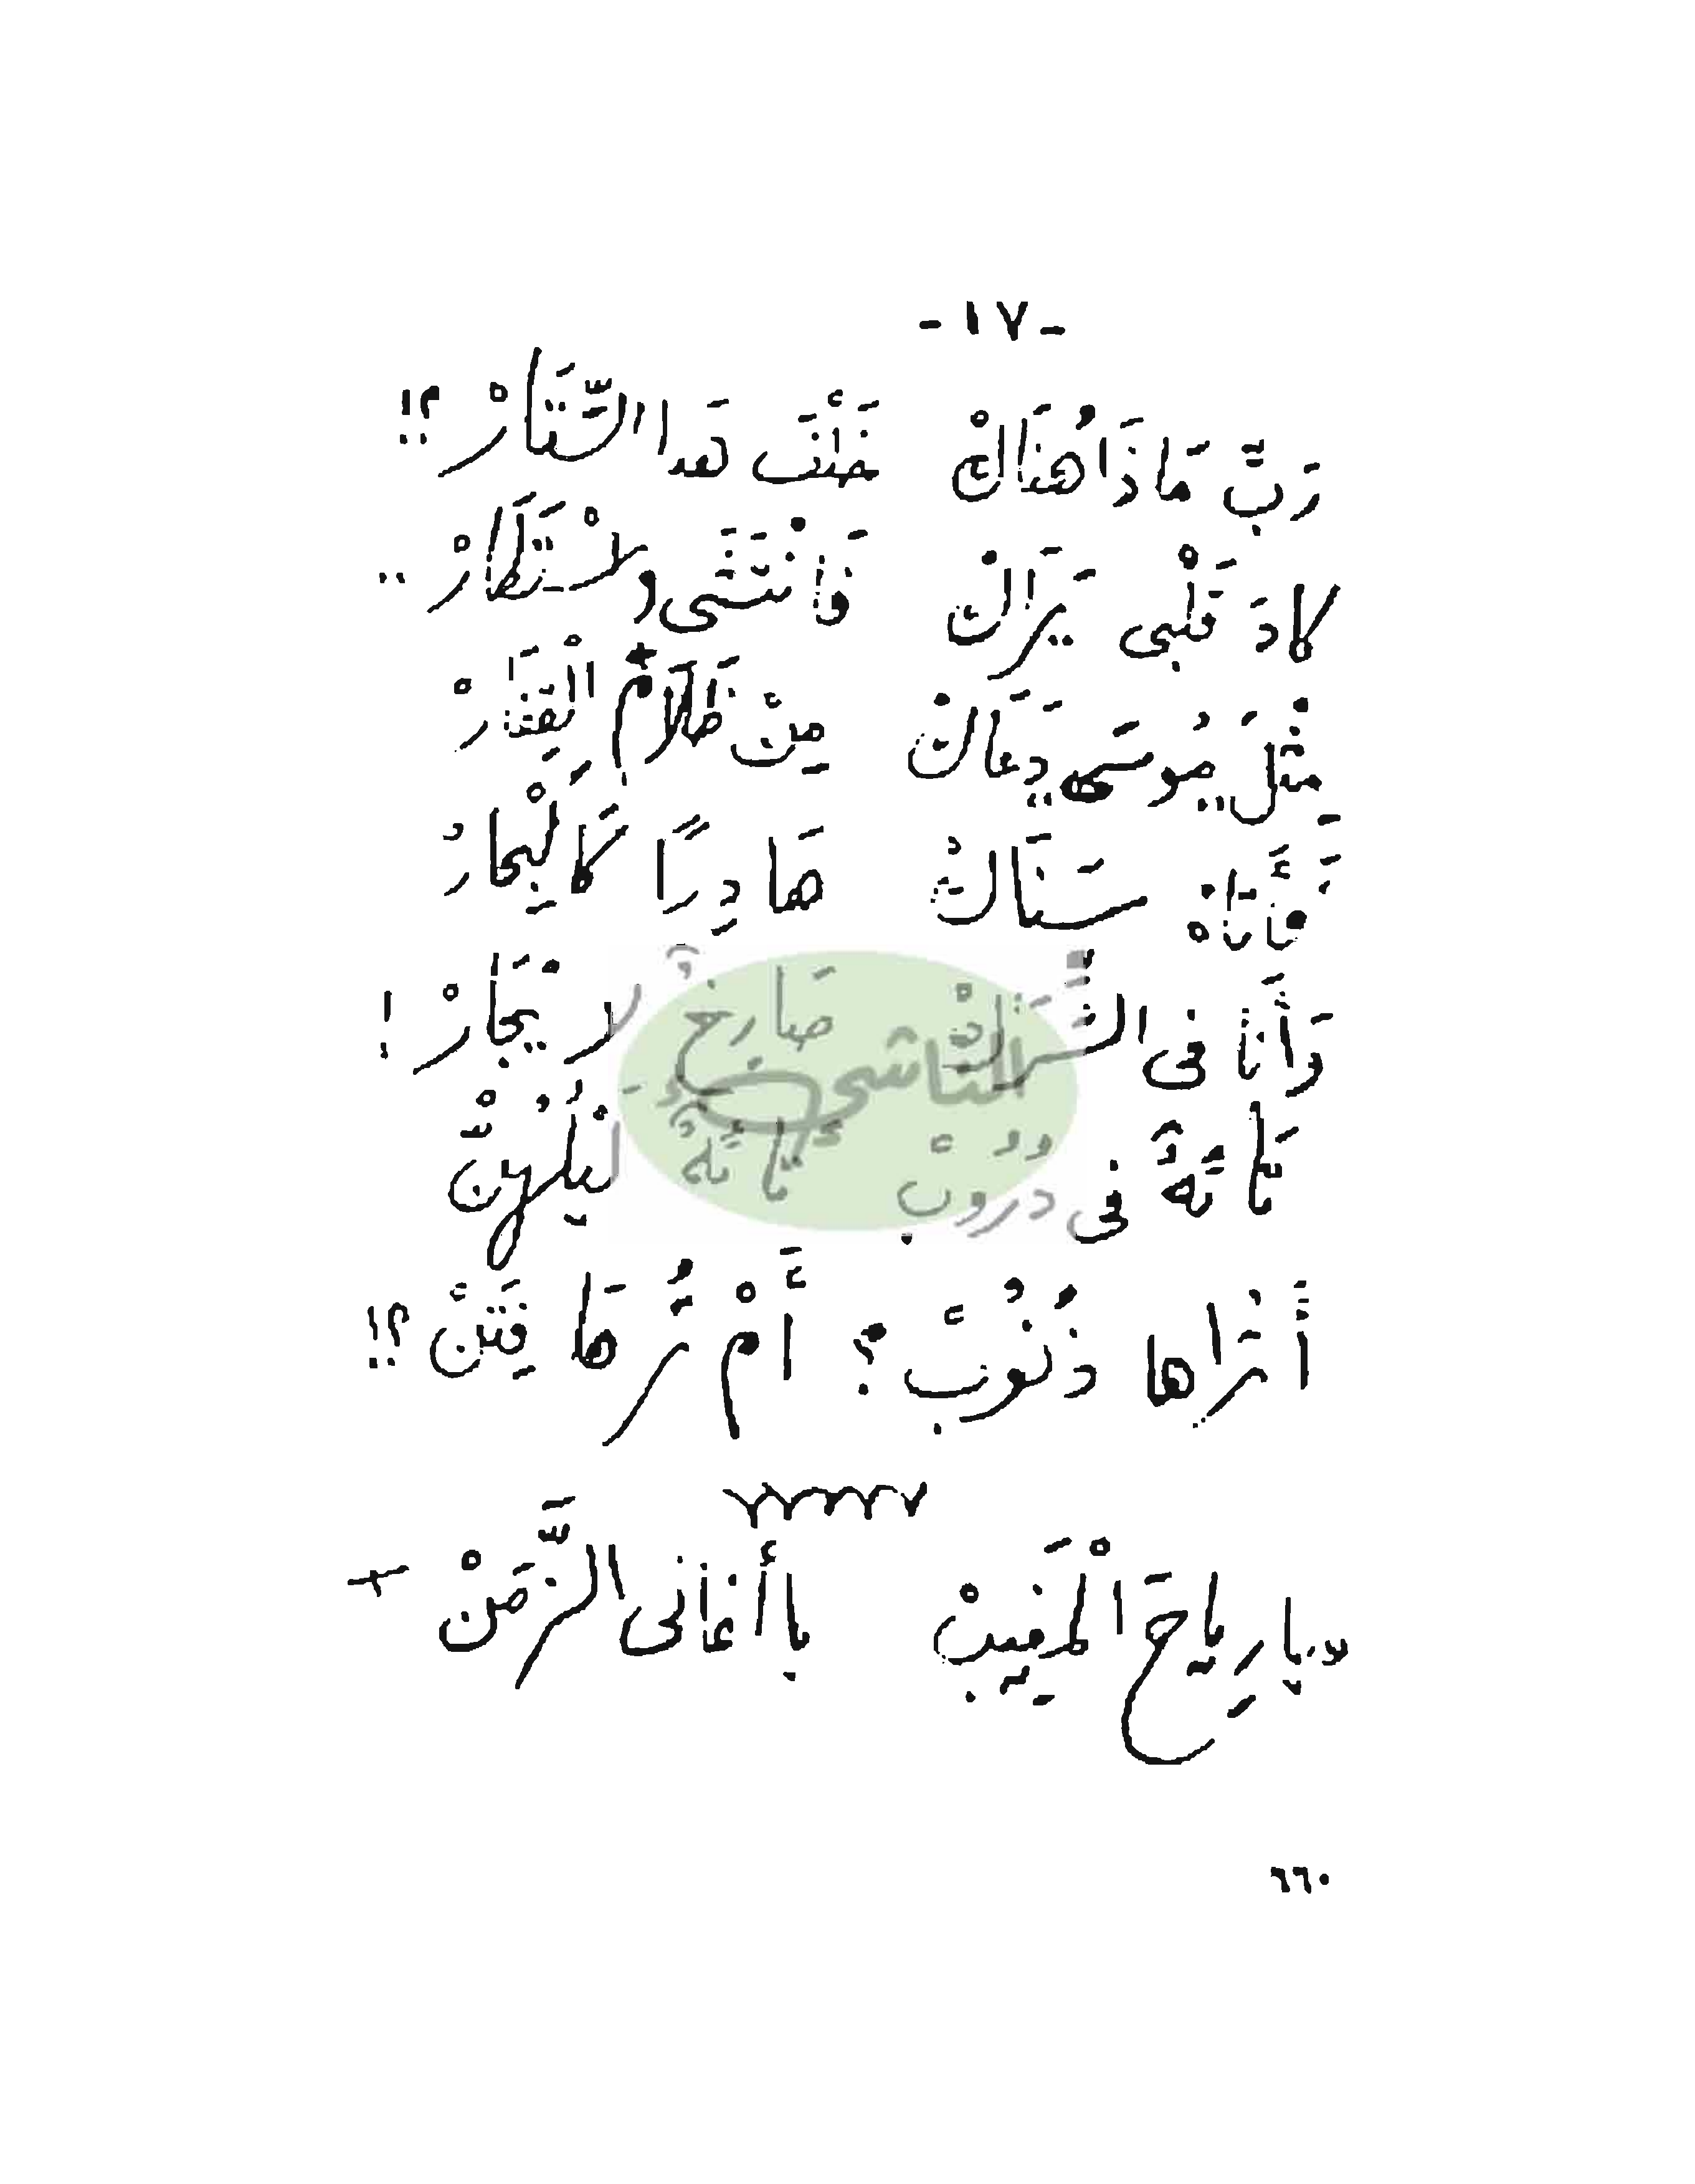 - ١٧ -
رَبِّ مَاذَا هُنَاكْ خَلْفَ هَذا السِّتَارْ ؟!
كادَ قَلْبِى يَرَاكْ فَانْتَشَى واسْتَطَارْ ..
مِثْلَ مُوسَى دَعَاكْ مِنْ ظَلَامِ الْقِفَارْ
فَأَتَاهُ سَنَاكْ هَادِرًا كَالْبِحَارْ
وَأَنَا فى الشِّرَاكْ صَارِخٌ لا يُجَارْ !
تَائِهٌ فى دُرُوبْ تَائِهٌ لَيْلُهُنّْ
أَتُرَاها ذُنُوبْ ؟ أَمْ تُرَها فِتَنْ ؟!
يا رِياحَ الْمَغِيبْ يا أغانى الزَّمَنْ
٦٦٠
الناشئ